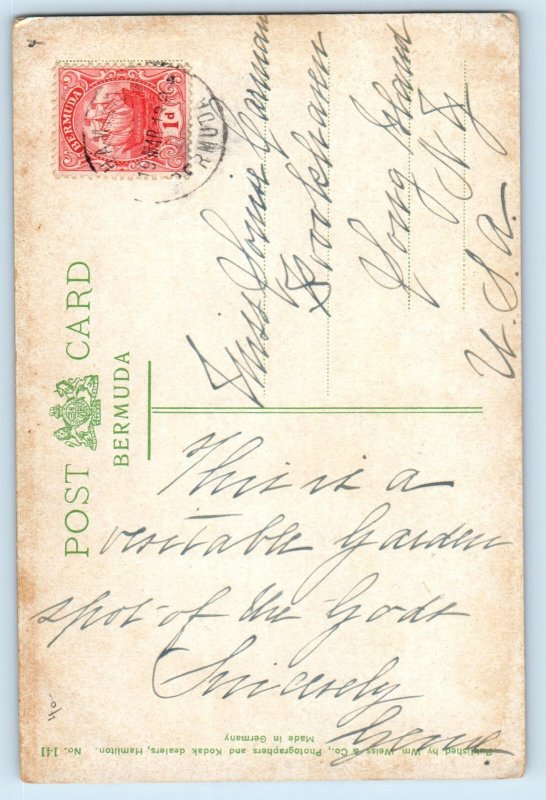 POST CARD
BERMUDA
BERMUDA
1d
BERMUDA
This is a
vesitable Garden
spot of the Gods
Sincerely
Gene.
Miss Garman
Brookhaven
Long Island
N Y
U.S.A.
40-
Published by Wm. Weiss & Co., Photographers and Kodak dealers, Hamilton. No. 141
Made in Germany